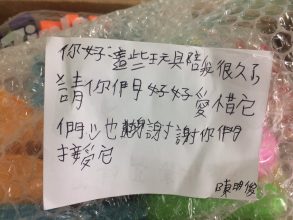 你好這些玩具陪我很久了
請你們好好愛惜它
們也謝謝你們
接受它
陳明俊